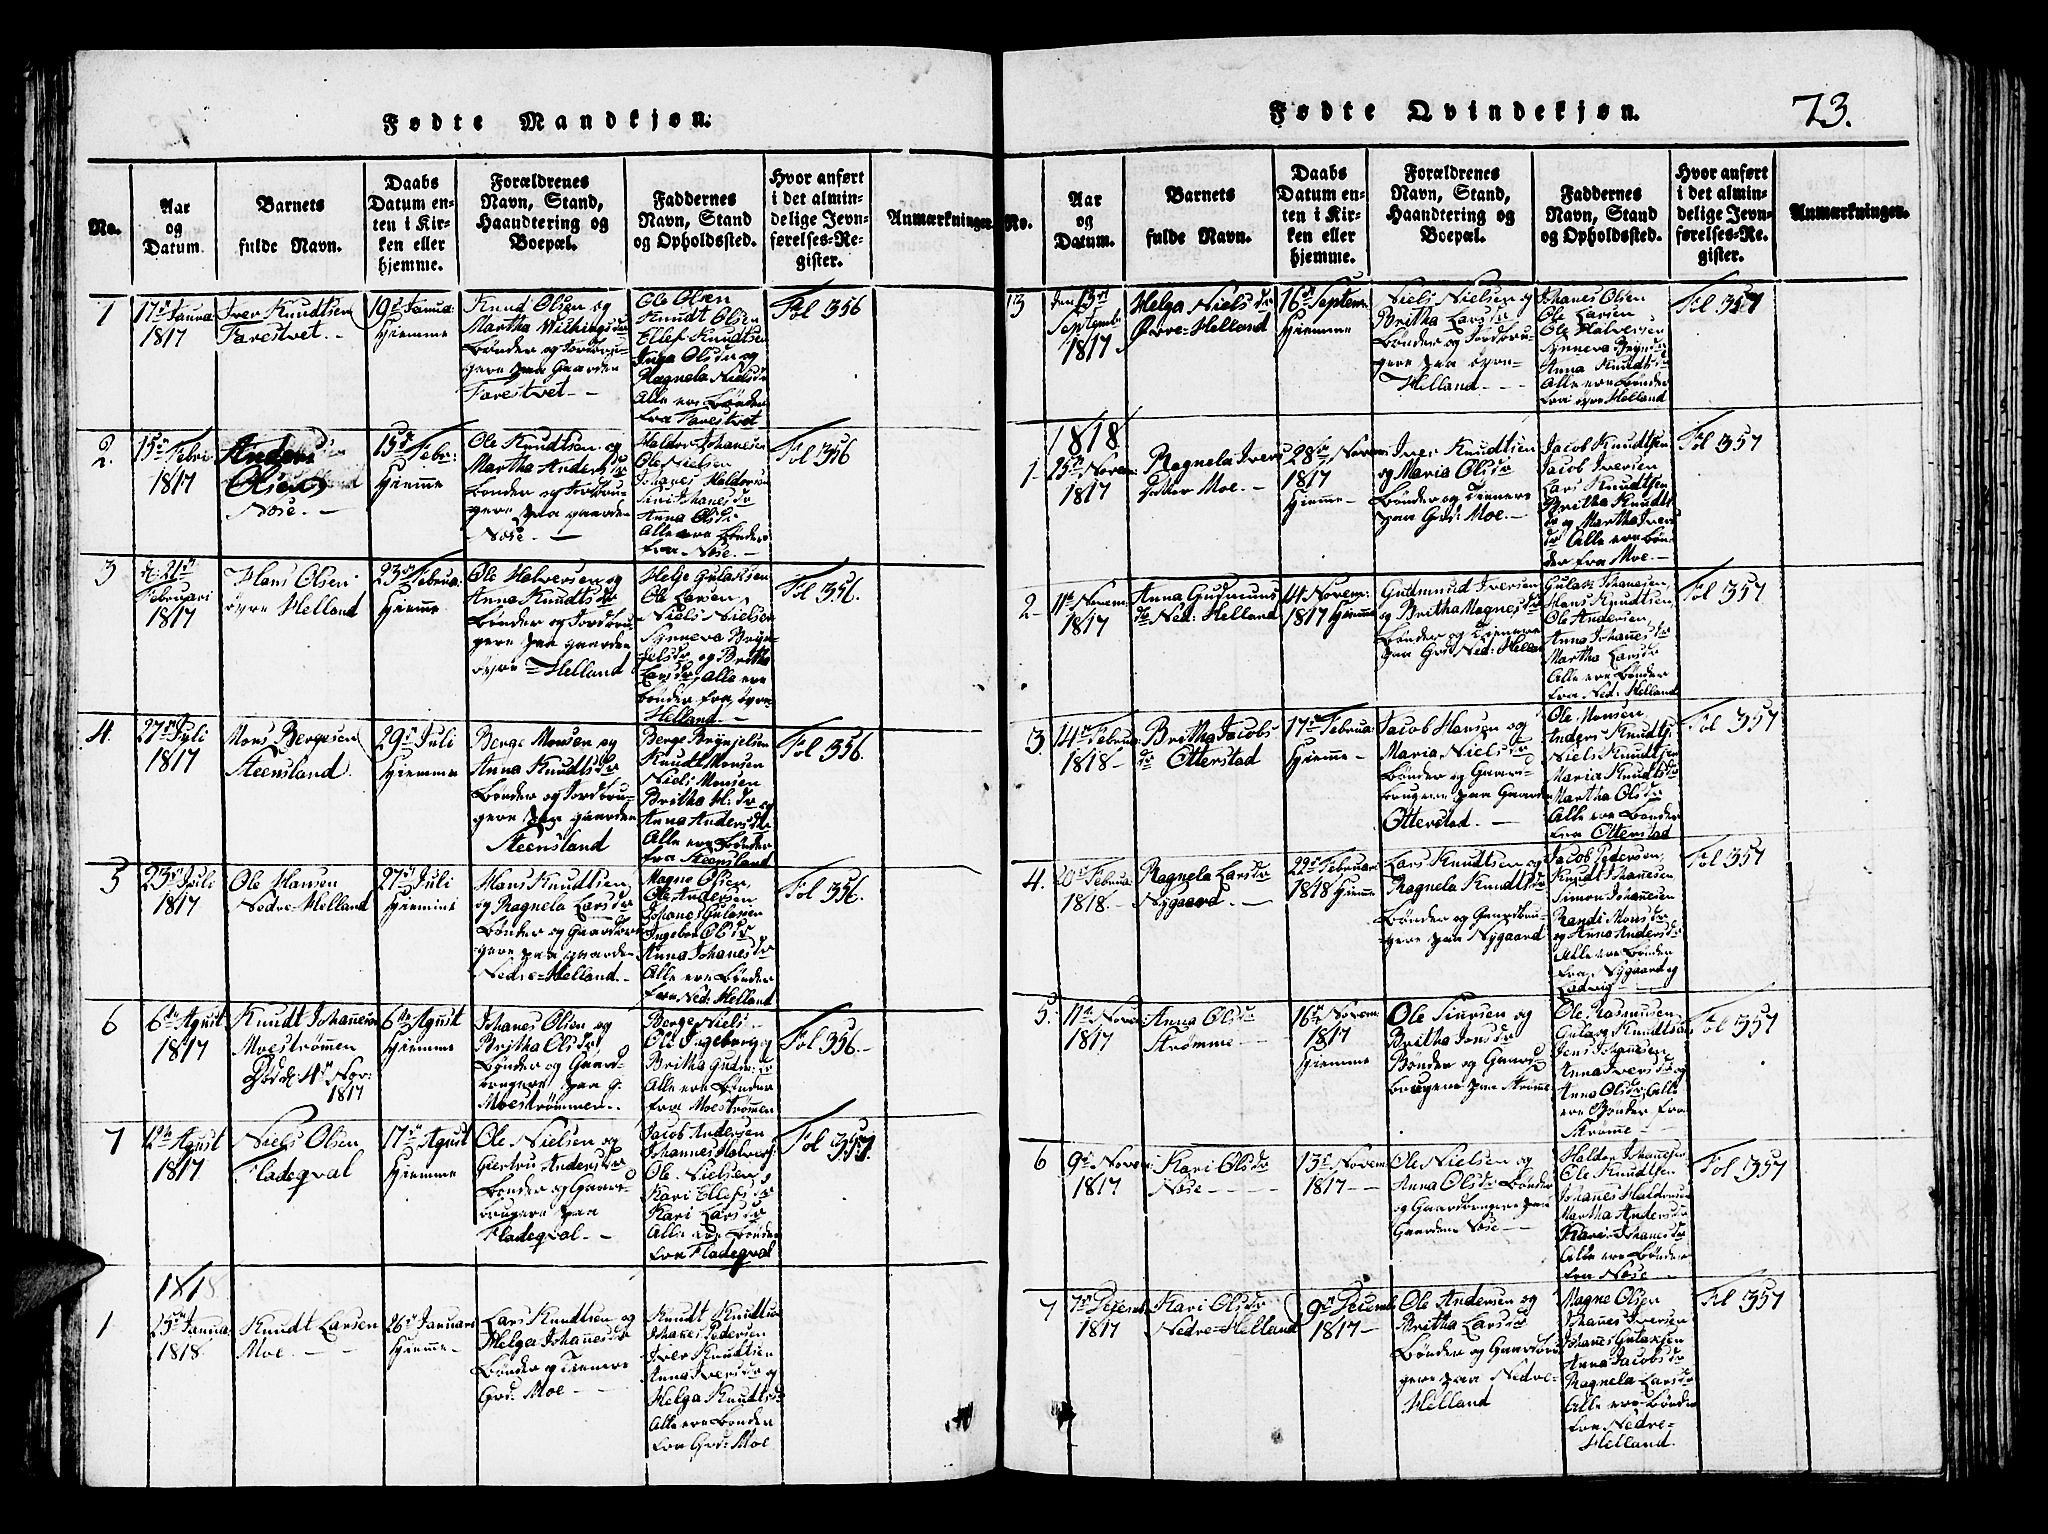 Fødte Mandkjøn.
No.
Aar
og
Datum.
Barnets
fulde Navn.
Daabs
Datum en-
ten i Kir-
ken eller
hjemme.
Forældrenes
Navn, Stand,
Haandtering og
Boepæl.
Faddernes
Navn, Stand
og Opholdssted.
Hvor anført
i det almin-
delige Jevn-
førelses-Re-
gister.
Anmærkninger.
1
17de Janua:
1817
Iver Knudtsen
Farestvet.
19de Janua:
Hiemme
Knud Olsen og
Martha
Bønder og Jordbru-
gere paa Gaarden
Farestvet
Ole Olsen
Knudt Olsen
Ellef Knudtsen
Inga Olsdr og
Ragnela Nielsdr
Alle ere Bønder
fra Farestvet
Fol 356
2.
15de Febr:
1817
Anders
Olsen
Nose.
15de Febr:
Hiemme
Ole Knudtsen og
Martha Andersdr
Bønder og Jordbru-
gere paa gaarden
Nose.
Haldor Johanesen
Ole Nielsen
Johanes Haldorsen
Kari Johanesdr
Anna Olsdr
Alle ere Bønder
fra Nose.
Fol 356
3
d: 21de
Februari
1817
Hans Olsen
øvre Helland
23de Februa:
Hiemme
Ole Halversen og
Anna Knudtsdr
Bønder og Jordbru-
gere paa gaarden
øvre Helland
Helje Gulaksen
Ole Larsen
Niels Nielsen
Synneva Bryn-
jelsdr og Britha
Larsdr, Alle ere
bønder fra øvre
Helland.
Fol 356.
4.
27de Juli
1817
Mons Bergesen
Steensland.
29de Juli
Hiemme
Berge Monsen og
Anna Knudtsdr
Bønder og Jordbru-
gere paa gaarden
Steensland
Berge Brynjelsen
Knudt Monsen
Niels Monsen
Britha M: dr og
Anna Andersdr
Alle ere Bønder
fra Steensland
Fol 356.
5
23de Juli
1817
Ole Hansen
Nedre-Helland
27de Juli
Hiemme
Hans Knudtsen,
og Ragnela Larsdr
Bønder og Gaardbru-
gere paa gaarden
Nedre-Helland.
Magne Olsen,
Ole Andersen
Johanes Gulaksen
Ingebor Olsdr
Anna Johanesdr
Alle ere Bønder
fra Ned: Helland
Fol 356.
6
6te Agust
1817
Knudt Johanesen
Moestrømmen
Død d: 4de Nov:
1817
6te Agust
Hiemme
Johanes Olsen og
Britha Olsdr
Bønder og Gaard-
brugere paa G.
Moestrømmen.
Berge Niels-
Ole Ingeberg og
Britha Gudm: dr
Alle ere Bønder
fra Moestrømmen
Fol 356.
7
12te Agust
1817
Niels Olsen
Fladeqval
17de Agust
Hiemme
Ole Nielsen og
Giertru Andersdr
Bønder og Gaard-
brugere paa
Fladeqval
Jacob Andersen
Johannes Halvers:
Ole Nielsen og
Kari Ellefsdr
Kari Larsdr
Alle ere Bønder
fra Fladeqval
Fol 357.
1818
1
23de Janua:
1818
Knudt Larsen
Moe
26de Januari
Hiemme
Lars Knudtsen og
Helga Johanesdr
Bønder og Tienere
Grd: Moe
Knudt Knudtsen
Johanes Pedersen
Iver Knudtsen
Anna Iversdr og
Helga Knudtsdr
Alle ere Bønder
fra Grd: Moe
Fødte Qvindekjøn.
73.
No.
Aar
og
Datum.
Barnets
fulde Navn.
Daabs
Datum en-
ten i Kir-
ken eller
hjemme.
Forældrenes
Navn, Stand,
Haandtering og
Boepæl.
Faddernes
Navn, Stand
og Opholdssted.
Hvor anført
i det almin-
delige Jevn-
førelses-Re-
gister.
Anmærkninger.
13
den 13de
Septemb:
1817
Helga Nielsdr
Øvre-Helland
16de Septem:
Hiemme
Niels Nielsen og
Britha Larsdr
Bønder og Jordbru-
gere paa øvre-
Helland
Johanes Olsen
Ole Larsen
Ole Halversen
Synneva Brynjdr
Anna Knudtsdr
Alle ere Bønder
fra øvre Helland
Fol 357
1818
1.
25de Novem:
1817
Ragnela Ivers
dotter Moe.
28de Novem:
1817
Hiemme
Iver Knudtsen
og Maria Olsdr
Bønder og Tienere
paa Grd: Moe.
Jacob Knudtsen
Jacob Iversen
Lars Knudtsen
Britha Knudts
dr og Martha Ivers
dr Alle ere Bøn-
der fra Moe.
Fol 357
2
11te Novem:
1817
Anna Gudmuns
dr Ned: Helland
14 Novem:
1817 Hiemme
Gudmund Iversen
og Britha Magnesdr
Bønder og Tienere
paa Grd Ned: Helland
Gulak Johanesen,
Hans Knudtsen,
Ole Andersen,
Anna Johanesdr
Martha Larsdr
Alle ere Bønder
fra Ned: Helland
Fol 357
3
14de Februa:
1818
Britha Jacobs
dr Otterstad
17de Februa:
Hiemme
Jacob Hansen og
Maria Nielsdr
Bønder og Gaard-
brugere paa Gaarden
Otterstad.
Ole Monsen
Anders Knudtsen
Niels Knudtsen
Maria Knudtsdr
Martha Olsdr
Alle ere Bønder
fra Otterstad
Fol 357
4.
20de Februa:
1818
Ragnela Larsdr
Nygaard
22de Februar:
1818 Hiemme
Lars Knudtsen og
Ragnela Knudtsdr
Bønder og Gaardbru-
gere paa Nygaard
Jacob Pedersen,
Knudt Johanesen
Simon Johanesen
Randi Monsdr
og Anna Andersdr
Alle ere Bønder
fra Nygaard og
Ladvig
Fol 357
5.
11te Novem:
1817
Anna Olsdr
Strømme
16de Novem:
1817
Hiemme
Ole Siursen og
Britha Jonsdr
Bønder og Gaard-
brugere paa Strømme
Ole Rasmusen
Gulag Knudtsen
Jens Johanesen
Anna Iversdr og
Anna Olsdr, Alle
ere Bønder fra
Strømme
Fol 357
6
9de Novem:
1817
Kari Olsdr
Nose
13de Novem:
1817
Ole Nielsen og
Anna Olsdr Bønder
og Gaardbrugere paa
Gaarden Nose
Haldor Johanesen
Ole Knudtsen
Johanes Haldorsen
Martha Andersdr
Kari Johanesdr
Alle ere Bønder
fra Nose.
Fol 357
7
7de Decemb:
1817
Kari Olsdr
Nedre-Helland
9de Decemb:
1817
Ole Andersen og
Britha Larsdr
Bønder og Gaardbru-
gere paa Nedre-
Helland
Magne Olsen
Johanes Iversen
Johanes Gulaksen
Anna Jacobsdr
Ragnela Larsdr
Alle ere Bønder
fra Nedre-
Helland.
Fol 357